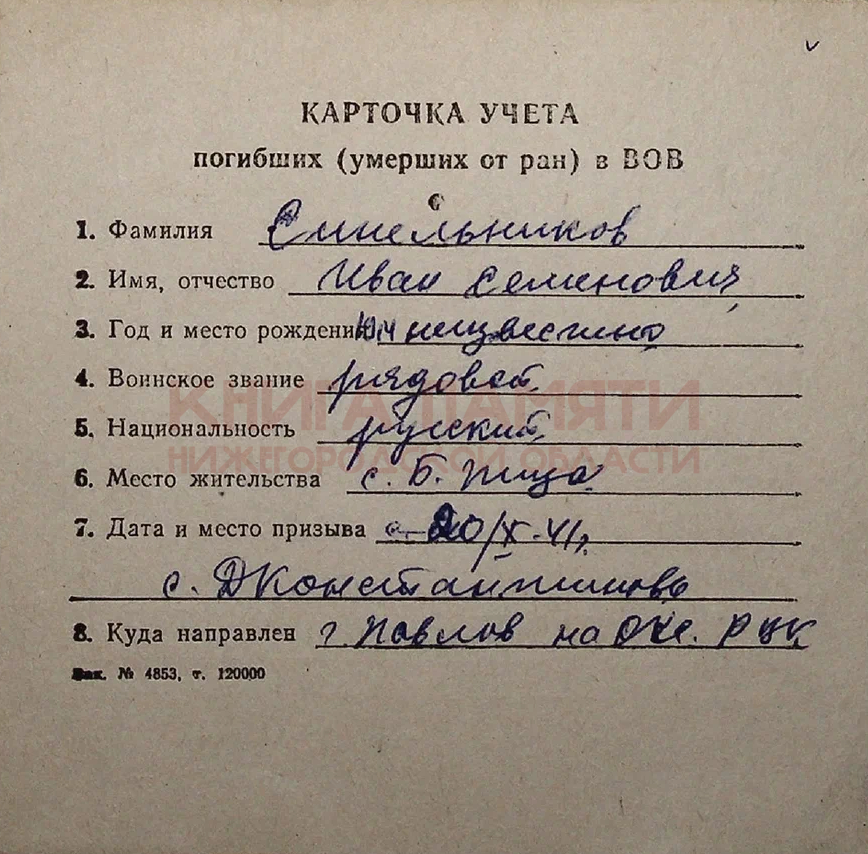 КАРТОЧКА УЧЕТА
погибших (умерших от ран) в ВОВ
1. Фамилия Синельников
2. Имя, отчество Иван Семенович
3. Год и место рождения неизвестно
4. Воинское звание рядовой
5. Национальность русский
КНИГА ПАМЯТИ
НИЖЕГОРОДСКОЙ ОБЛАСТИ
6. Место жительства с. Б. Пица
7. Дата и место призыва 20/X-41г.
с. ДКонстантиново
8. Куда направлен г. Павлов на Оке. РВК
Зак. № 4853, т. 120000